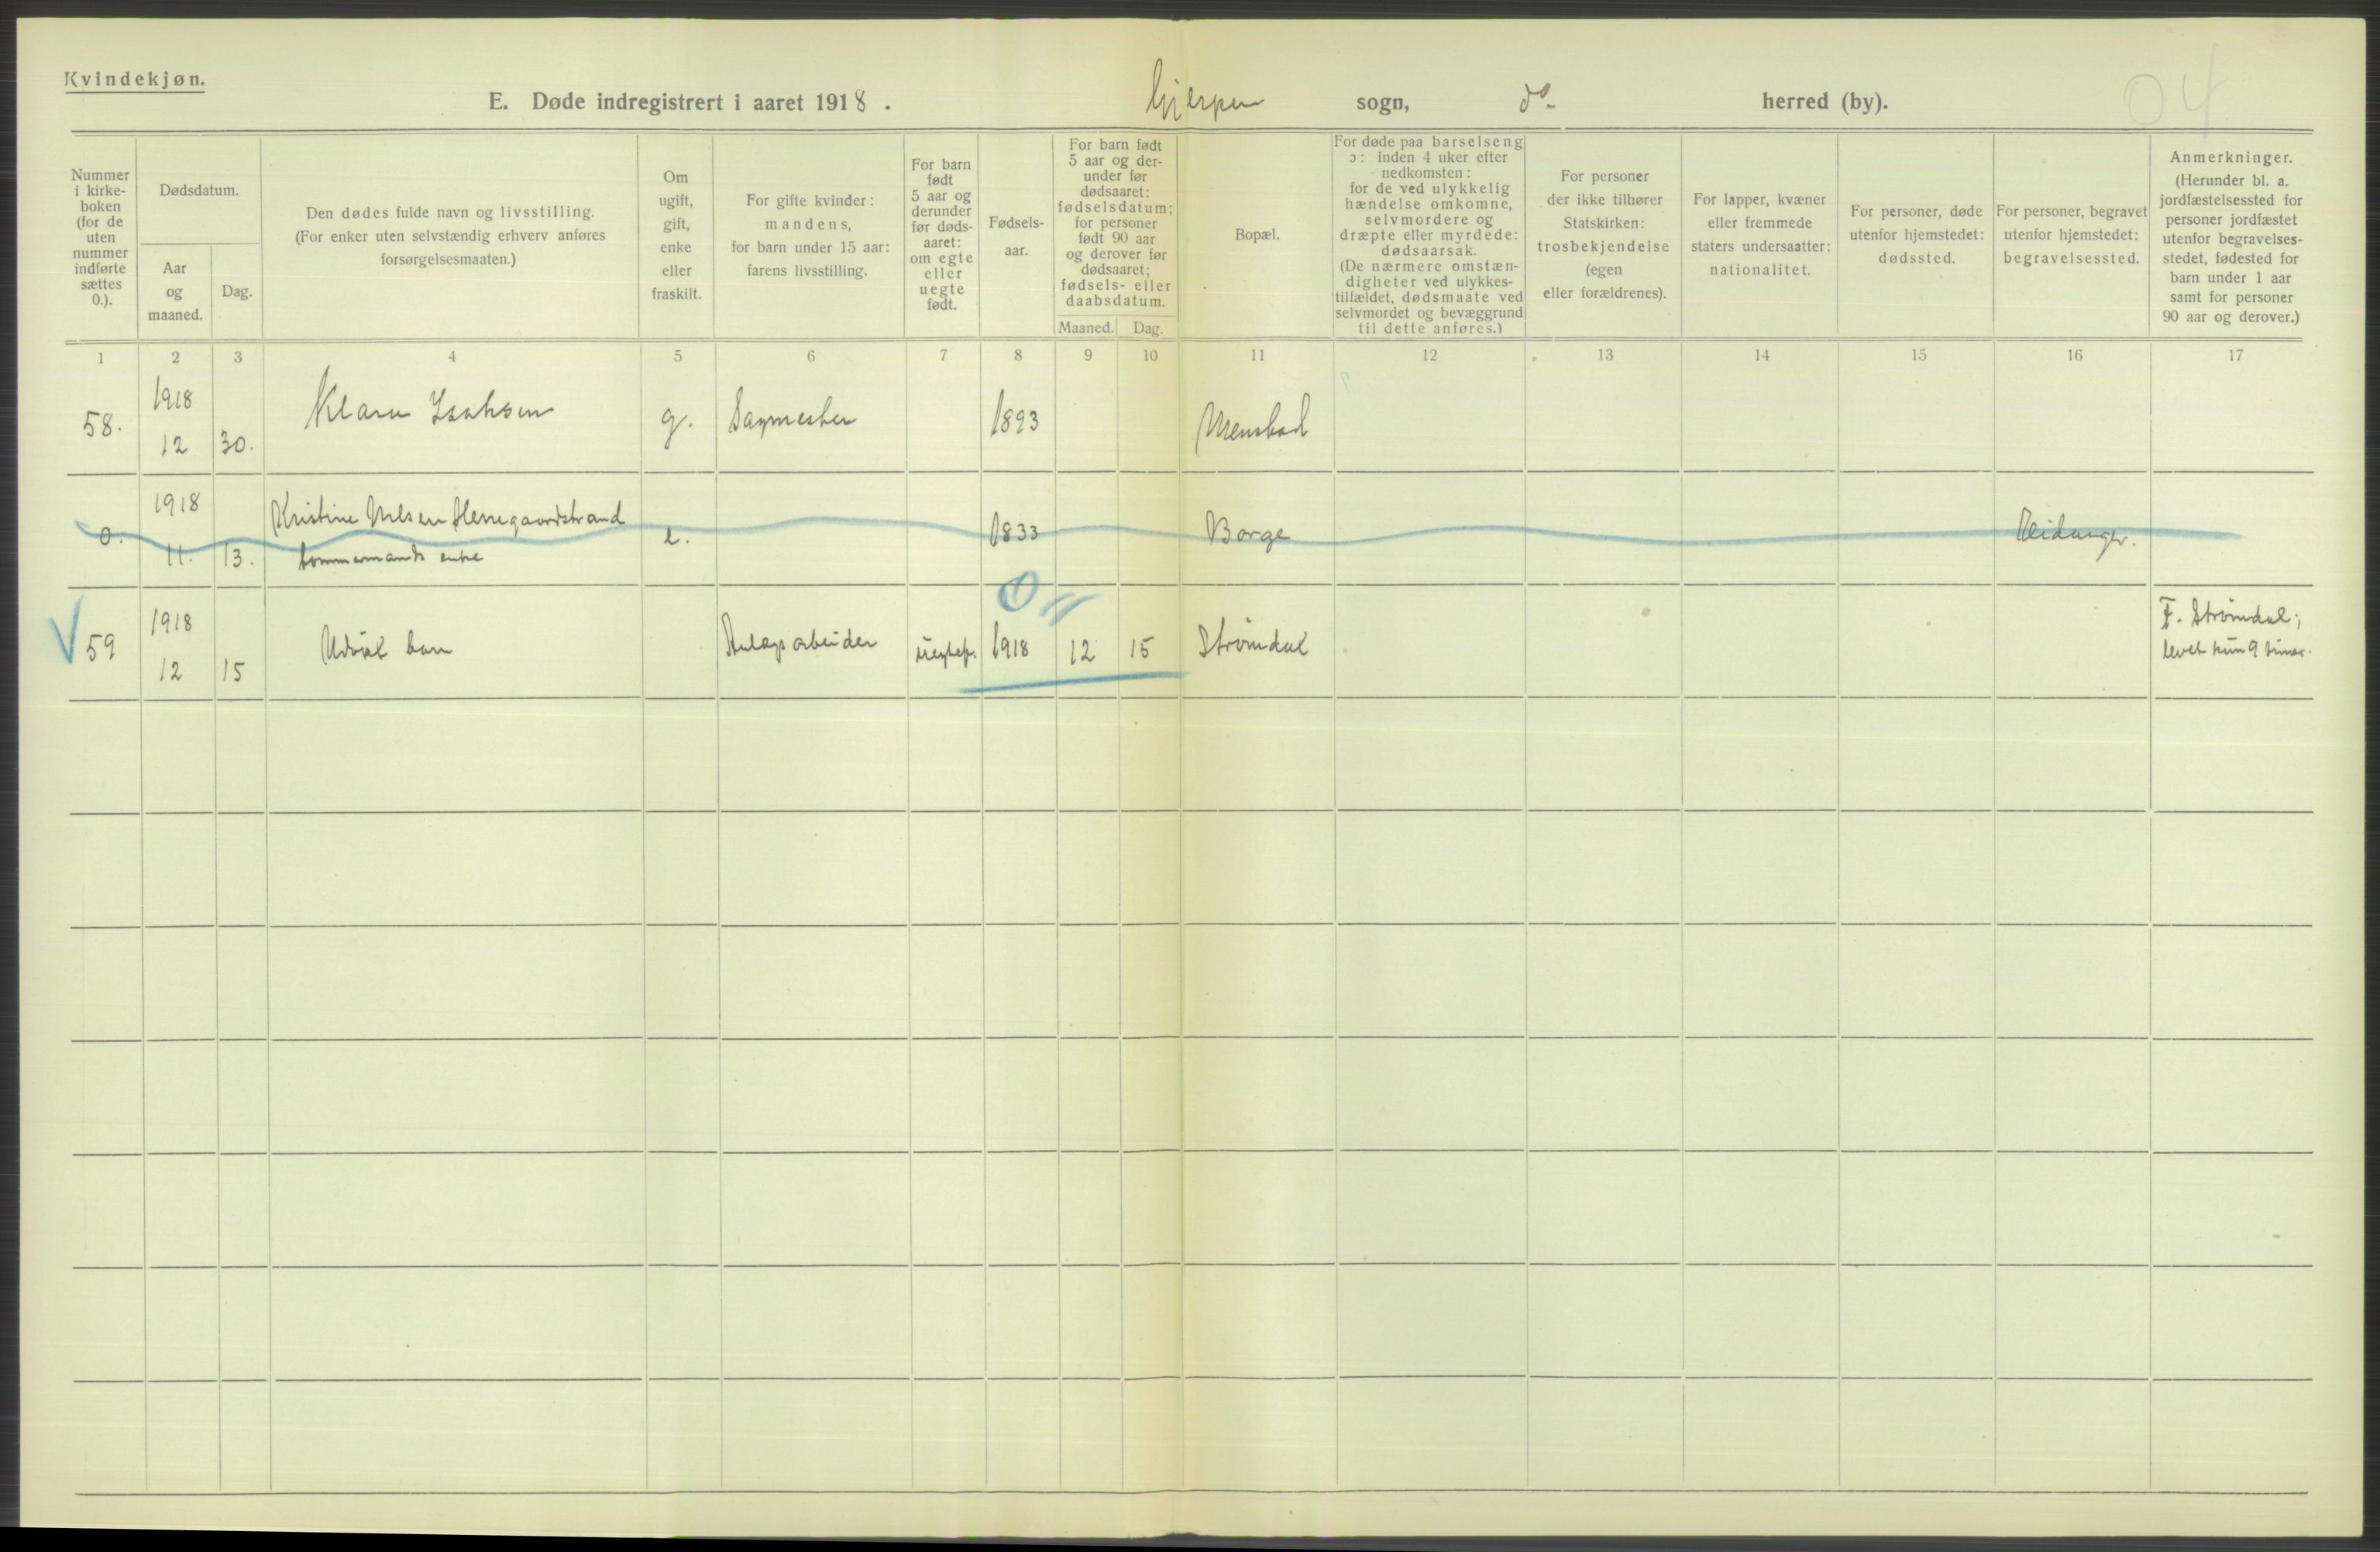 Kvindekjøn.
E. Døde indregistrert i aaret 1918. Gjerpen sogn, do. herred (by).
04
Nummer
i kirke-
boken
(for de
uten
nummer
indførte
sættes
0.).
Dødsdatum.
Aar
og
maaned.
Dag.
Den dødes fulde navn og livsstilling.
(For enker uten selvstændig erhverv anføres
forsørgelsesmaaten.)
Om
ugift,
gift,
enke
eller
fraskilt.
For gifte kvinder:
mandens,
for barn under 15 aar:
farens livsstilling.
For barn
født
5 aar og
derunder
før døds-
aaret:
om egte
eller
uegte
født.
Fødsels-
aar.
For barn født
5 aar og der-
under før
dødsaaret:
fødselsdatum;
for personer
født 90 aar
og derover før
dødsaaret;
fødsels- eller
daabsdatum.
Maaned. Dag.
Bopæl.
For døde paa barselseng
ɔ: inden 4 uker efter
nedkomsten:
for de ved ulykkelig
hændelse omkomne,
selvmordere og
dræpte eller myrdede:
dødsaarsak.
(De nærmere omstæn-
digheter ved ulykkes-
tilfældet, dødsmaate ved
selvmordet og bevæggrund
til dette anføres.)
For personer
der ikke tilhører
Statskirken:
trosbekjendelse
(egen
eller forældrenes).
For lapper, kvæner
eller fremmede
staters undersaatter:
nationalitet.
For personer, døde
utenfor hjemstedet:
dødssted.
For personer, begravet
utenfor hjemstedet:
begravelsessted.
Anmerkninger.
(Herunder bl. a.
jordfæstelsessted for
personer jordfæstet
utenfor begravelses-
stedet, fødested for
barn under 1 aar
samt for personer
90 aar og derover.)
1 2 3 4 5 6 7 8 9 10 11 12 13 14 15 16 17
58. 1918 12 30. Klara Isaksen g. Sagmester 1893 Menstad
0. 1918 11. 13. Kristine Nilsen Herregaardstrand
tømmermands enke e. 1833 Borge Eidanger.
59 1918 12 15 Udøpt barn Anlægsarbeider uegtef. 1918 12 15 Strømdal
F. Strømdal;
levet kun 9 timer.